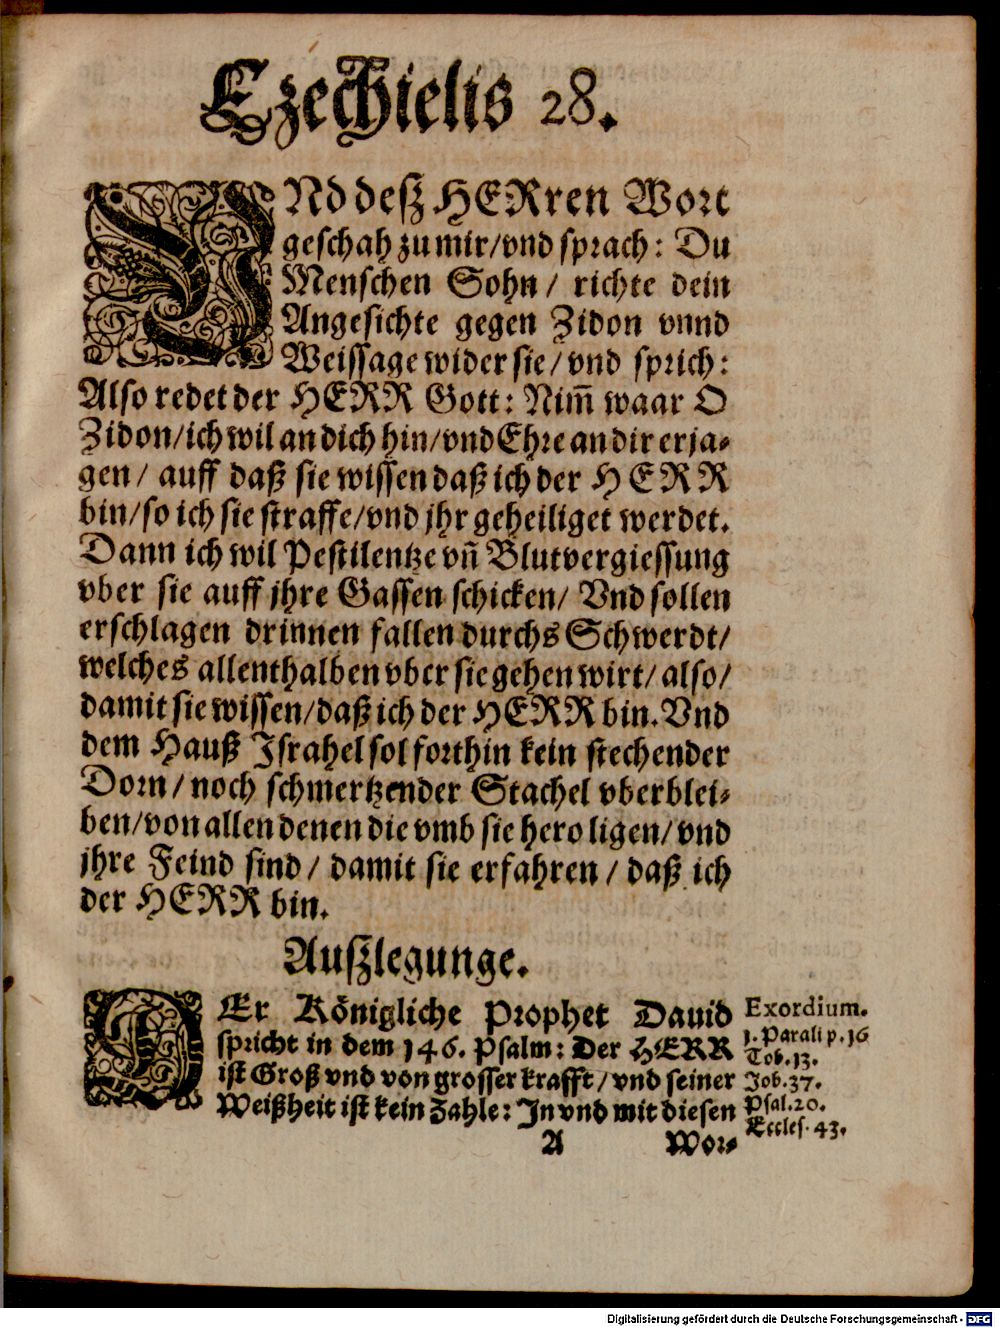 Ezechielis 28.
VNd deß HERren Wort
geschah zu mir/vnd sprach: Du
Menschen Sohn/ richte dein
Angesichte gegen Zidon vnnd
Weissage wider sie/vnd sprich:
Also redet der HERR Gott: Nim̃ waar O
Zidon/ich wil an dich hin/vnd Ehre an dir erja-
gen/ auff daß sie wissen daß ich der HERR
bin/so ich sie straffe/vnd jhr geheiliget werdet.
Dann ich wil Pestilentze vñ Blutvergiessung
vber sie auff jhre Gassen schicken/ Vnd sollen
erschlagen drinnen fallen durchs Schwerdt/
welches allenthalben vber sie gehen wirt/ also/
damit sie wissen/daß ich der HERR bin. Vnd
dem Hauß Israhel sol forthin kein stechender
Dorn/ noch schmertzender Stachel vberblei-
ben/von allen denen die vmb sie hero ligen/ vnd
jhre Feind sind/ damit sie erfahren/ daß ich
der HERR bin.
Außlegunge.
DEr Königliche Prophet Dauid
spricht in dem 146. Psalm: Der HERR
ist Groß vnd von grosser krafft/ vnd seiner
Weißheit ist kein Zahle: In vnd mit diesen
Exordium.
1. Paralip. 16
Tob. 13.
Job. 37.
Psal. 20.
Eccles. 43.
A
Wor-
Digitalisierung gefördert durch die Deutsche Forschungsgemeinschaft - DFG